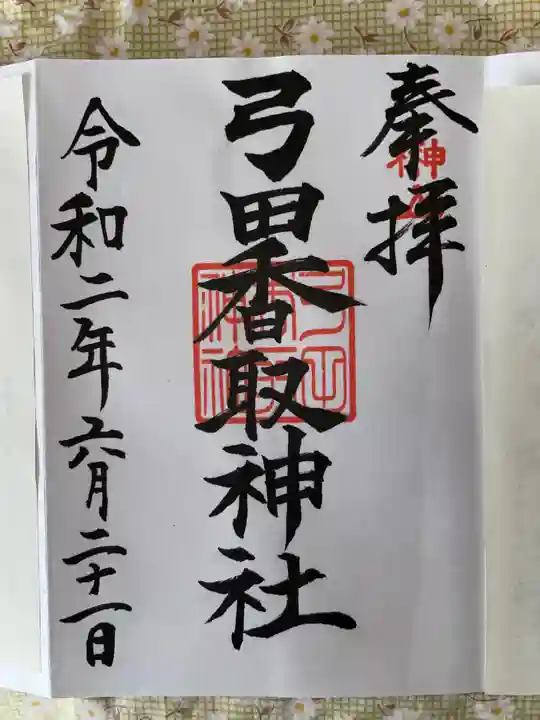 奉拝
弓田香取神社
令和二年六月二十一日